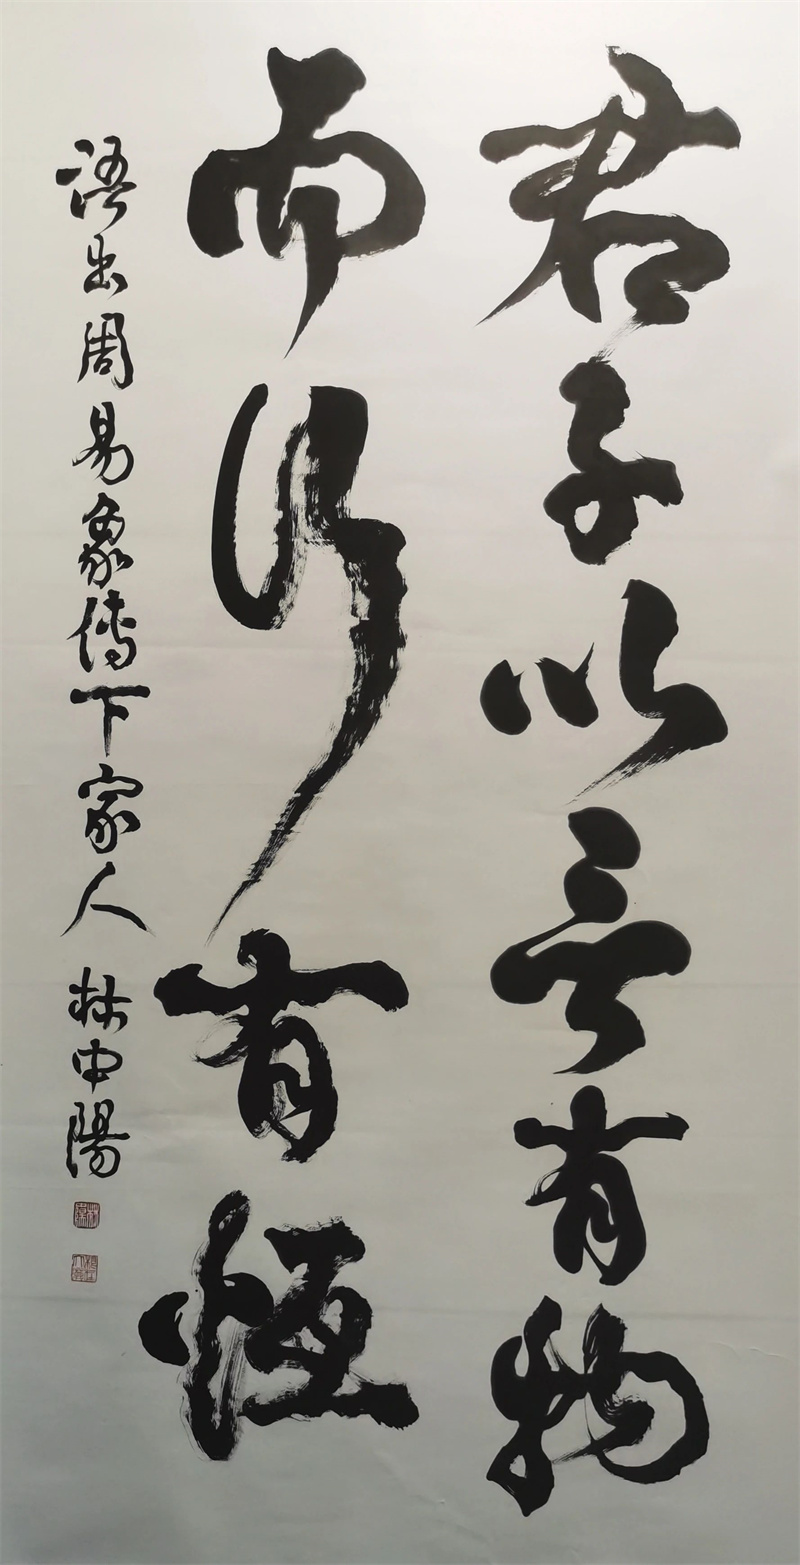 君子以言有物
而行有恆
語出周易象傳下家人 林中陽